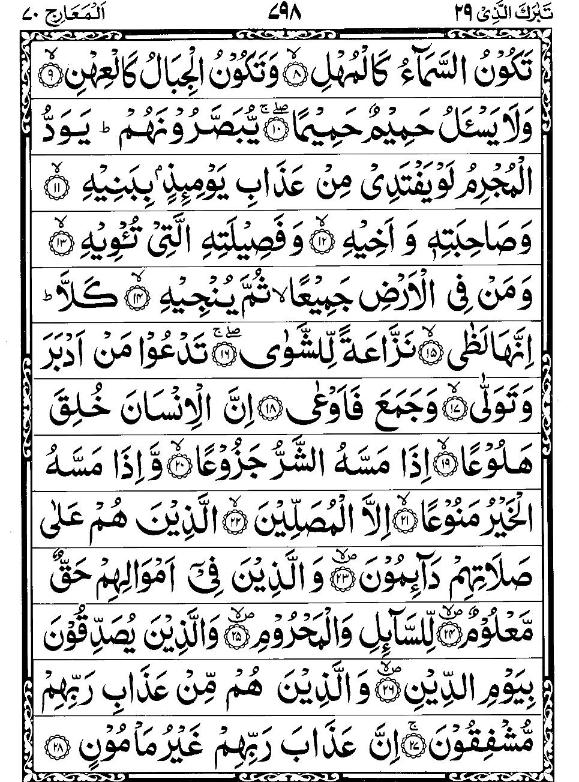 تَبٰرَكَ الَّذِیْ ۲۹ ۷۹۸ اَلْمَعَارِج ۷۰
تَكُوْنُ السَّمَآءُ كَالْمُهْلِ ۙ۝۸ وَتَكُوْنُ الْجِبَالُ كَالْعِهْنِ ۙ۝۹
وَلَا یَسْـَٔلُ حَمِیْمٌ حَمِیْمًا ۚۖ۝۱۰ یُّبَصَّرُوْنَهُمْ ؕ یَوَدُّ
الْمُجْرِمُ لَوْ یَفْتَدِیْ مِنْ عَذَابِ یَوْمِىِٕذٍۭ بِبَنِیْهِ ۙ۝۱۱
وَصَاحِبَتِهٖ وَاَخِیْهِ ۙ۝۱۲ وَفَصِیْلَتِهِ الَّتِیْ تُـْٔوِیْهِ ۙ۝۱۳
وَمَنْ فِی الْاَرْضِ جَمِیْعًا ۙ ثُمَّ یُنْجِیْهِ ۙ۝۱۴ كَلَّا ؕ
اِنَّهَا لَظٰی ۙ۝۱۵ نَزَّاعَةً لِّلشَّوٰی ۚۖ۝۱۶ تَدْعُوْا مَنْ اَدْبَرَ
وَتَوَلّٰی ۙ۝۱۷ وَجَمَعَ فَاَوْعٰی ۝۱۸ اِنَّ الْاِنْسَانَ خُلِقَ
هَلُوْعًا ۙ۝۱۹ اِذَا مَسَّهُ الشَّرُّ جَزُوْعًا ۙ۝۲۰ وَّاِذَا مَسَّهُ
الْخَیْرُ مَنُوْعًا ۙ۝۲۱ اِلَّا الْمُصَلِّیْنَ ۙ۝۲۲ الَّذِیْنَ هُمْ عَلٰی
صَلَاتِهِمْ دَآىِٕمُوْنَ ۪ۙ۝۲۳ وَالَّذِیْنَ فِیْۤ اَمْوَالِهِمْ حَقٌّ
مَّعْلُوْمٌ ۪ۙ۝۲۴ لِّلسَّآىِٕلِ وَالْمَحْرُوْمِ ۪ۙ۝۲۵ وَالَّذِیْنَ یُصَدِّقُوْنَ
بِیَوْمِ الدِّیْنِ ۪ۙ۝۲۶ وَالَّذِیْنَ هُمْ مِّنْ عَذَابِ رَبِّهِمْ
مُّشْفِقُوْنَ ۚ۝۲۷ اِنَّ عَذَابَ رَبِّهِمْ غَیْرُ مَاْمُوْنٍ ۝۲۸